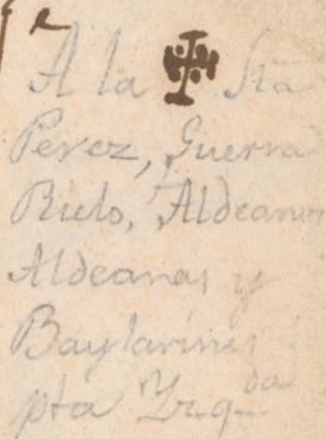 A la Sta
Perez, Guerra
Rielo, Aldeanos
Aldeanas y
Baylarines
pta Yzq.da